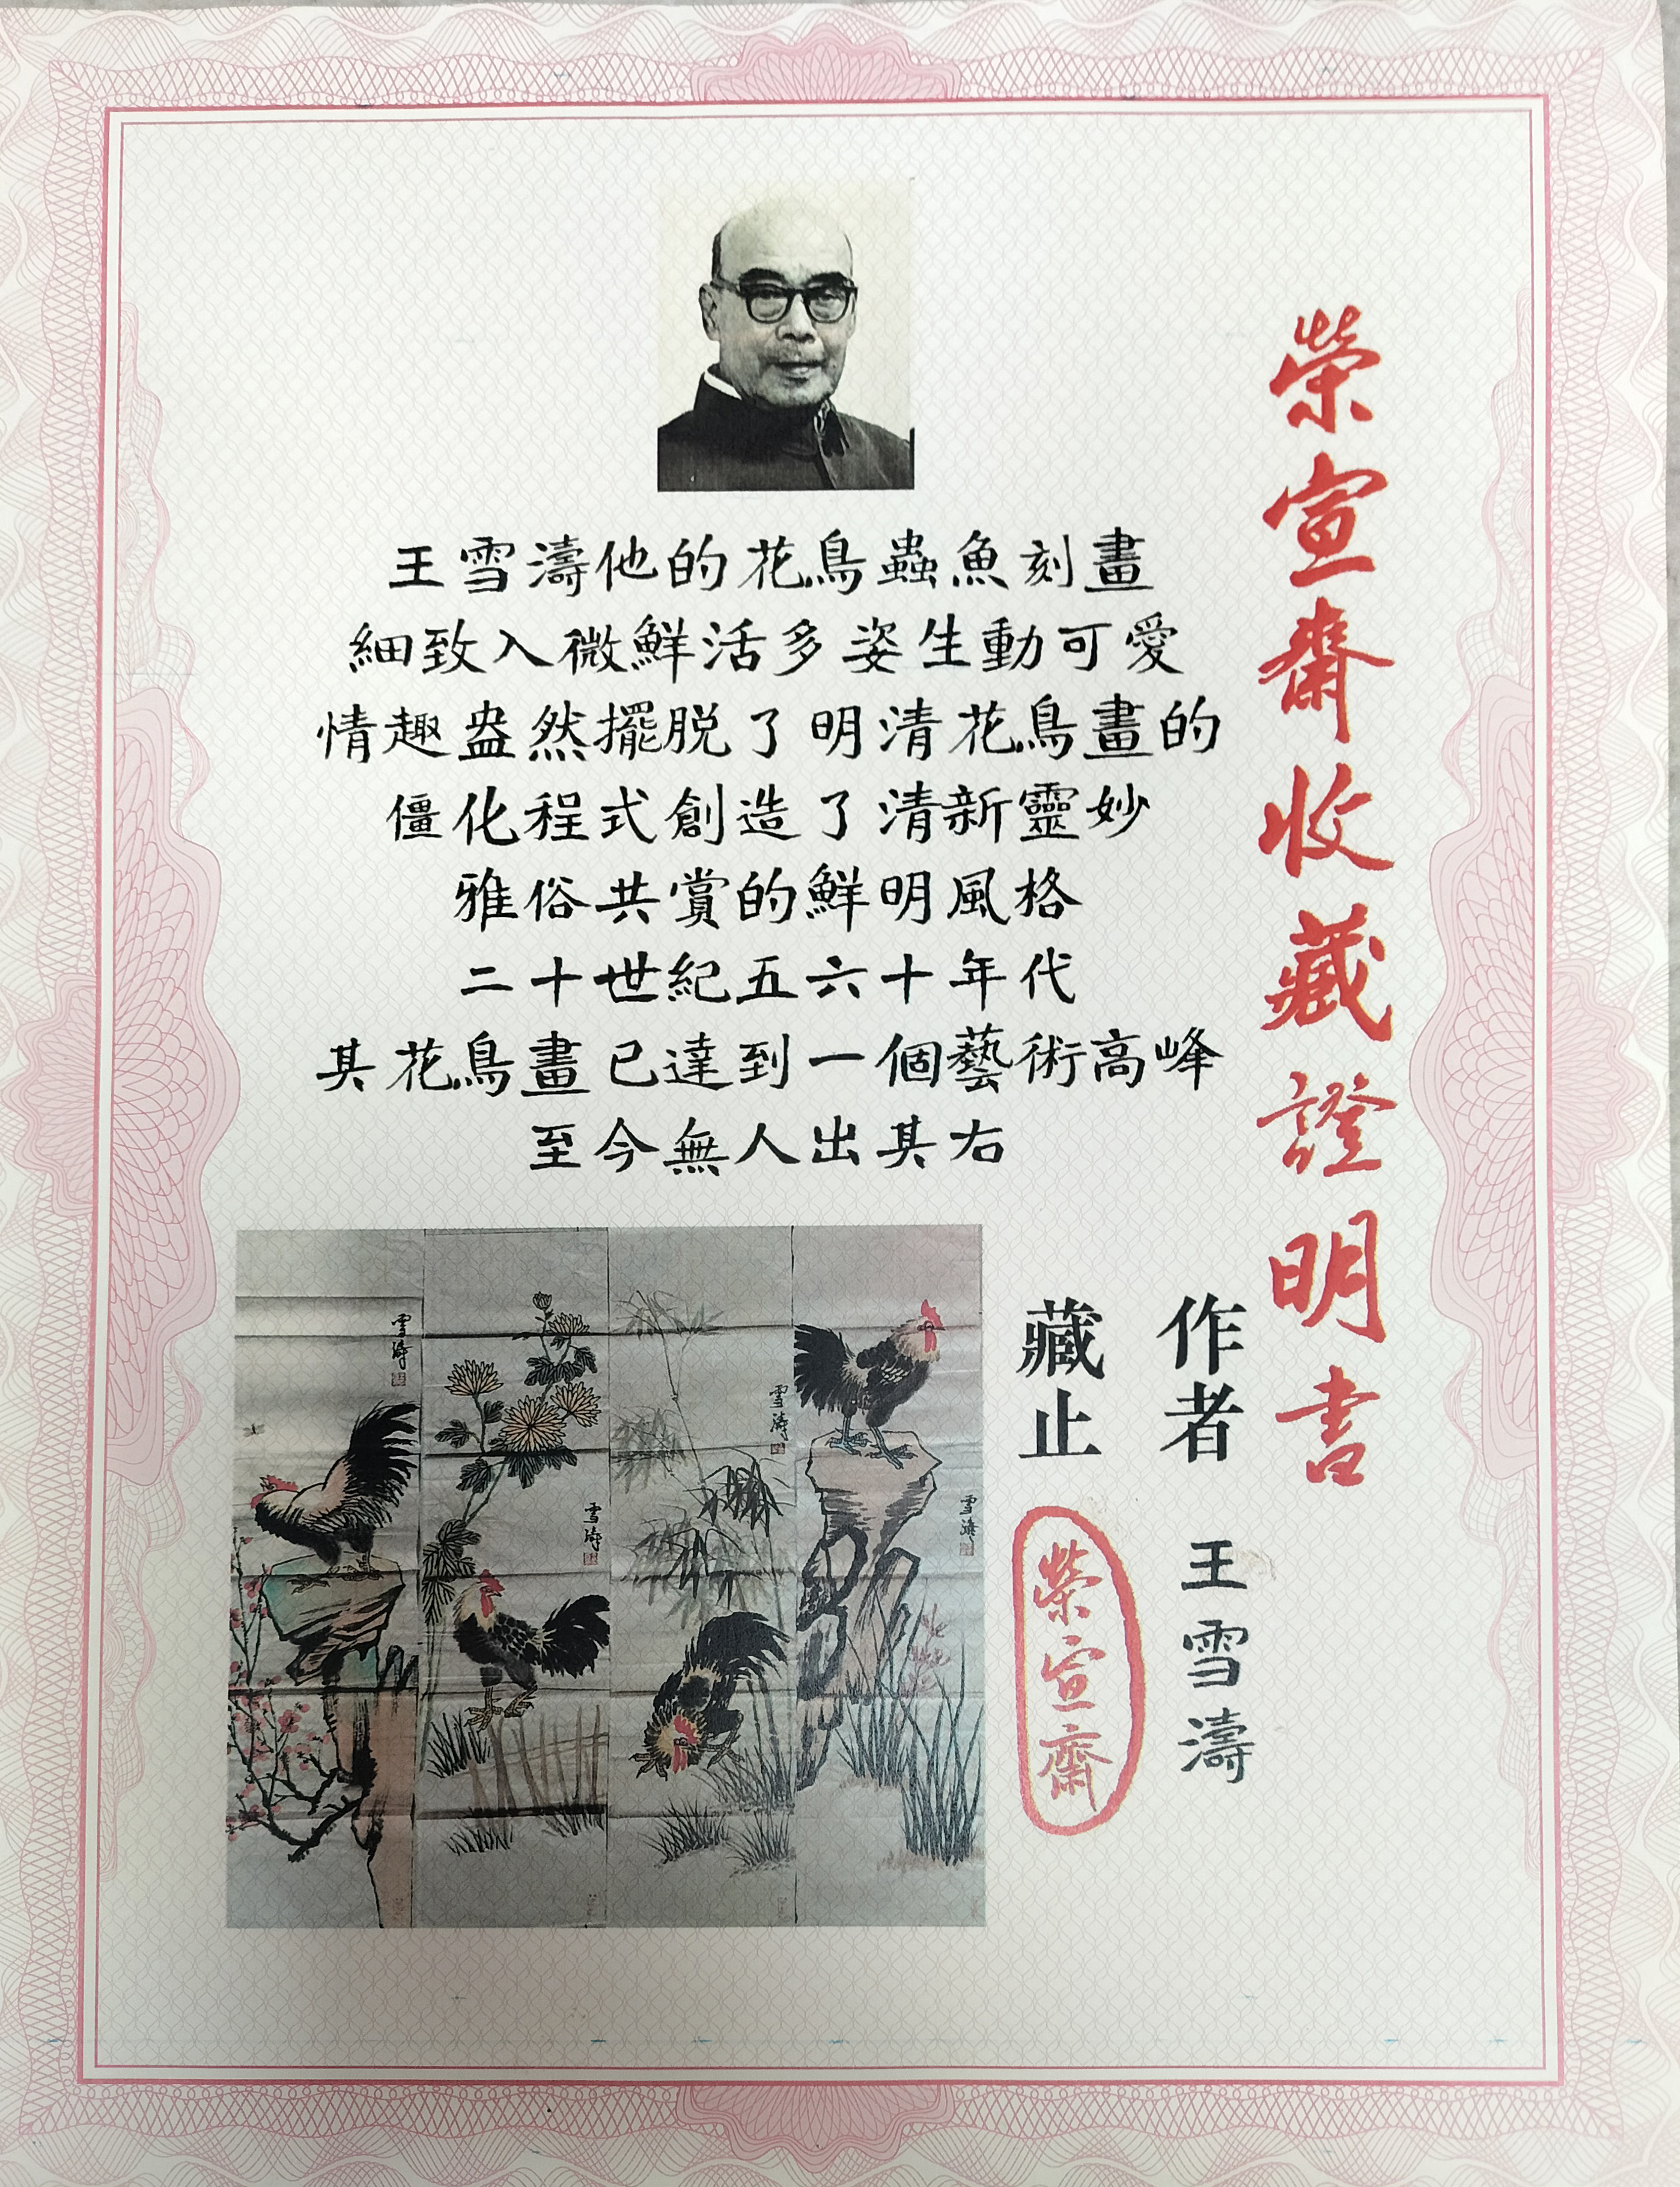 榮宣齋收藏證明書
王雪濤他的花鳥蟲魚刻畫
細致入微鮮活多姿生動可愛
情趣盎然擺脱了明清花鳥畫的
僵化程式創造了清新靈妙
雅俗共賞的鮮明風格
二十世紀五六十年代
其花鳥畫已達到一個藝術高峰
至今無人出其右
作者 王雪濤
藏止 榮宣齋
雪濤
雪濤
雪濤
雪濤